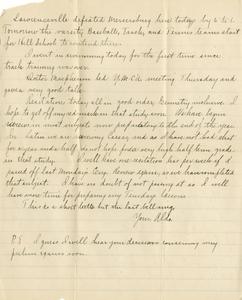 Lawrenceville defeated Mercersburg here today by 6 to 1.
Tomorrow the varsity Baseball, Track, and Tennis teams start
for Hill School to contend there.
I went in swimming today for the first time since
track training was over.
Doctor Macphenn led Y.M.C.A. meeting Thursday and
gave a very good talk.
Recitations today all in good order Geometry inclusive. I
hope to get off my exam in that study soon. We have begun
review in most subjects now preparatory to the end of the year.
In Latin we are reviewing Caesar and as I have not had that
for a year and a half I do not hope for a very high half term grade
in that study. I will have one recitation less per week if I
passed off last Monday's Greek Review exam, as we have completed
that subject. I have no doubt of not passing it so I will
have more time for preparing my Tuesday lessons.
This is a short letter but the last bell rang,
Your Aldo.
P.S. I guess I will hear your decision concerning my
prelim exams soon.